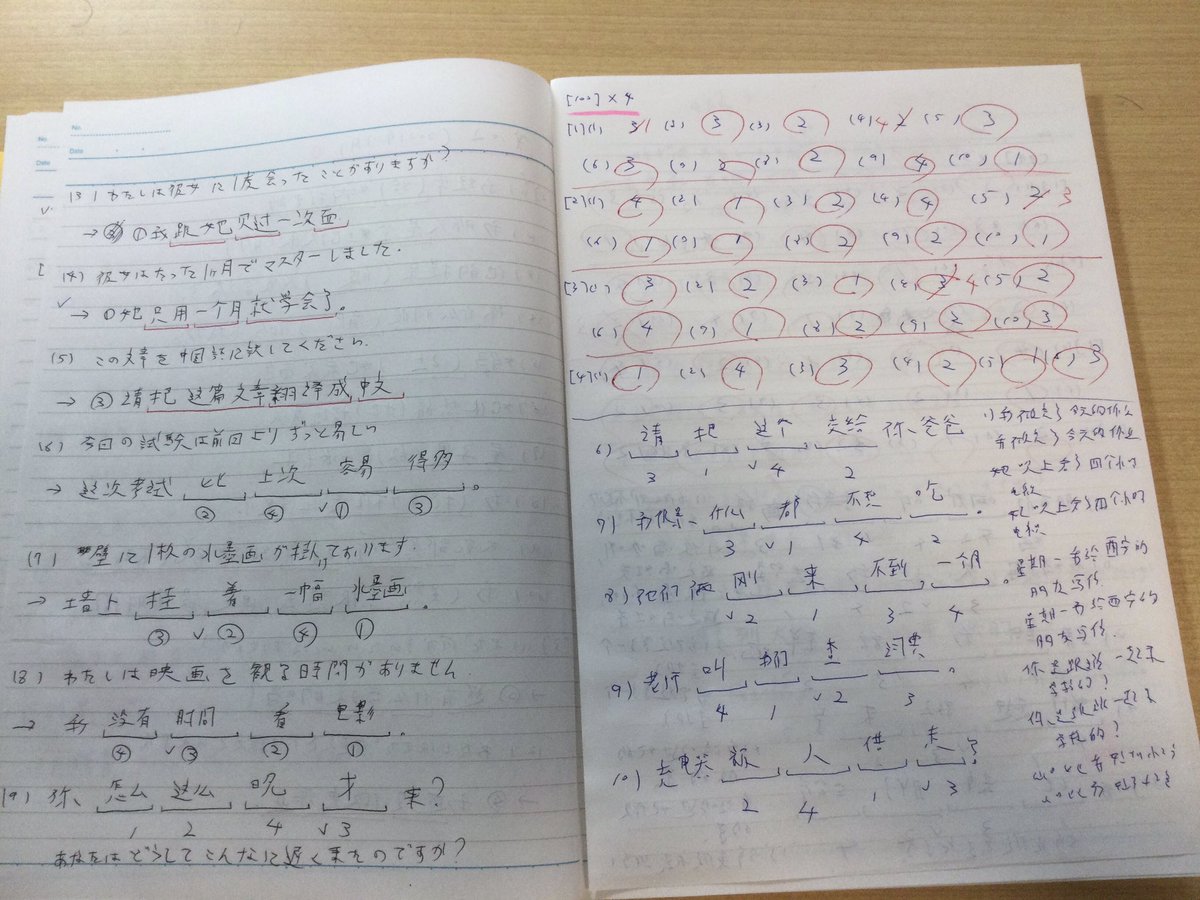 No.
Date
No.
Date
(3) わたしは彼女に1度会ったことがありますか?
→ ① 我跟她见过一次面。
(4) 彼女はたった1ヶ月でマスターしました。
→ ① 她只用一个月就学会了。
(5) この文章を中国語に訳してください。
→ ③ 请把这篇文章翻译成中文
(6) 今回の試験は前回よりずっと易しい
→ 这次考试 比 上次 容易 得多。
② ④ ① ③
(7) 壁に1枚の水墨画が掛けております。
→ 墙上 挂 着 一幅 水墨画。
③ ② ④ ①
(8) わたしは映画を観る時間がありません
→ 我 没有 时间 看 电影。
④ ③ ② ①
(9) 你、怎么 这么 晚 才 来?
1 2 4 3
あなたはどうしてこんなに遅く来たのですか?
[100] × 4
[1](1) 3 1 (2) 3 (3) 2 (4) 4 2 (5) 3
(6) 3 (7) 2 (8) 2 (9) 4 (10) 1
[2](1) 4 (2) 1 (3) 2 (4) 4 (5) 2 3
(6) 1 (7) 1 (8) 2 (9) 2 (10) 1
[3](1) 3 (2) 2 (3) 1 (4) 3 4 (5) 2
(6) 4 (7) 1 (8) 2 (9) 2 (10) 3
[4](1) 1 (2) 4 (3) 3 (4) 2 (5) 1 3
6) 请 把 这个 交给 你、爸爸
3 1 4 2
7) 什么 都 不想 吃。
3 1 4 2
8) 他们俩 刚 来 不到 一个月。
2 1 3 4
9) 老师 叫 我们 查 词典。
4 1 2 3
10) 人 借 走了
2 4 1 3
星期一我给西安的
朋友写信
星期一我给西安的
朋友写信.
你是跟谁一起来
学校的?
你是跟谁一起来
学校的?